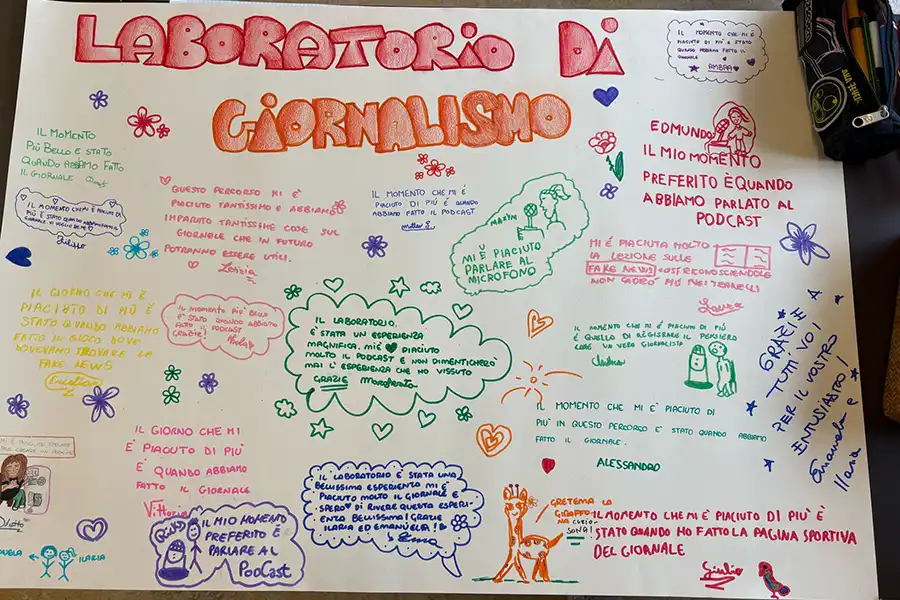 LABORATORIO DI
GIORNALISMO
IL MOMENTO CHE MI È
PIACIUTO DI PIÙ È STATO
QUANDO ABBIAMO FATTO IL
GIORNALE
AMBRA
IL MOMENTO
PIÙ BELLO E STATO
QUANDO ABBIAMO FATTO
IL GIORNALE
IL MOMENTO CHE MI È PIACIUTO DI
PIÙ È STATO QUANDO ABBIAMO
GIORNALE. VI VOGLIO BENE
QUESTO PERCORSO MI È
PIACIUTO TANTISSIMO E ABBIAMO
IMPARATO TANTISSIME COSE SUL
GIORNALE CHE IN FUTURO
POTRANNO ESSERE UTILI.
Letizia
IL MOMENTO CHE MI È
PIACIUTO DI PIÙ È QUANDO
ABBIAMO FATTO IL PODCAST
MI È PIACIUTO
PARLARE AL
MICROFONO
EDMUNDO
IL MIO MOMENTO
PREFERITO È QUANDO
ABBIAMO PARLATO AL
PODCAST
MI È PIACIUTA MOLTO
LA LEZIONE SULLE
FAKE NEWS COSÌ RICONOSCIENDOLE
NON CADRÒ PIÙ NEI TRANELLI
Laura
IL GIORNO CHE MI È
PIACIUTO DI PIÙ È
STATO QUANDO ABBIAMO
FATTO IN GIOCO DOVE
DOVEVAMO TROVARE LA
FAKE NEWS
Cristian
IL MOMENTO PIÙ BELLO
È STATO QUANDO ABBIAMO
FATTO IL PODCAST
GRAZIE!
IL LABORATORIO,
È STATA UN ESPERIENZA
MAGNIFICA. MI È PIACIUTO
MOLTO IL PODCAST E NON DIMENTICHERÒ
MAI L'ESPERIENZA CHE HO VISSUTO
GRAZIE Margherita
IL MOMENTO CHE MI È PIACIUTO DI PIÙ
È QUELLO DI REGISTRARE IL PENSIERO
COME UN VERO GIORNALISTA
GRAZIE A
TUTTI VOI
PER IL VOSTRO
ENTUSIASMO!
Emanuela e
Ilaria
IL MOMENTO CHE MI E' PIACIUTO DI
PIÙ IN QUESTO PERCORSO E' STATO QUANDO ABBIAMO
FATTO IL GIORNALE.
ALESSANDRO
IL GIORNO CHE MI
È PIACUTO DI PIÙ
È QUANDO ABBIAMO
FATTO IL GIORNALE
Vittoria
IL MIO MOMENTO
PREFERITO È
PARLARE AL
PODCAST
IL LABORATORIO È STATA UNA
BELLISSIMA ESPERIENZA MI È
PIACIUTO MOLTO IL GIORNALE E
SPERO DI RIVERE QUESTA ESPERI-
ENZA BELLISSIMA! GRAZIE
ILARIA ED EMANUELA!
GRETEMA LA
GIRAFFONA CURIOSONA!
IL MOMENTO CHE MI È PIACIUTO DI PIÙ È
STATO QUANDO HO FATTO LA PAGINA SPORTIVA
DEL GIOANALE
Giulio
ILARIA